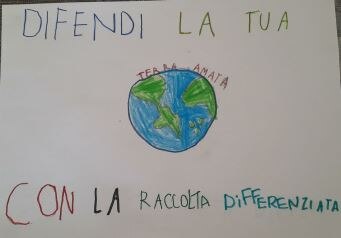 DIFENDI LA TUA
TERRA AMATA
CON LA RACCOLTA DIFFERENZIATA